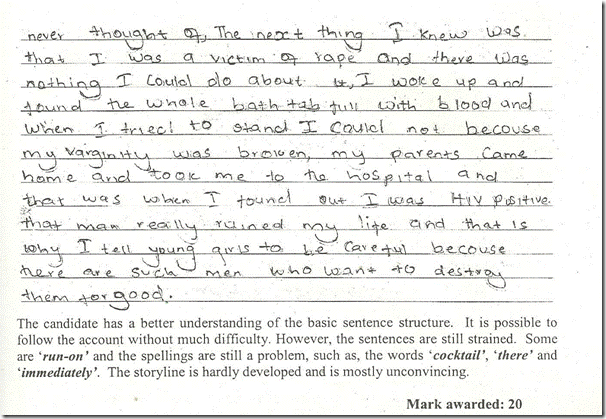 never thought of, The next thing I knew was
that I was a victim of rape and there was
nothing I could do about it, I woke up and
found the whole bath tab full with blood and
when I tried to stand I could not becouse
my varginity was broken, my parents came
home and took me to the hospital and
that was when I found out I was HIV positive.
that man really ruined my life and that is
why I tell young girls to be careful becouse
there are such men who want to destroy
them for good.
The candidate has a better understanding of the basic sentence structure. It is possible to
follow the account without much difficulty. However, the sentences are still strained. Some
are ‘run-on’ and the spellings are still a problem, such as, the words ‘cocktail’, ‘there’ and
‘immediately’. The storyline is hardly developed and is mostly unconvincing.
Mark awarded: 20